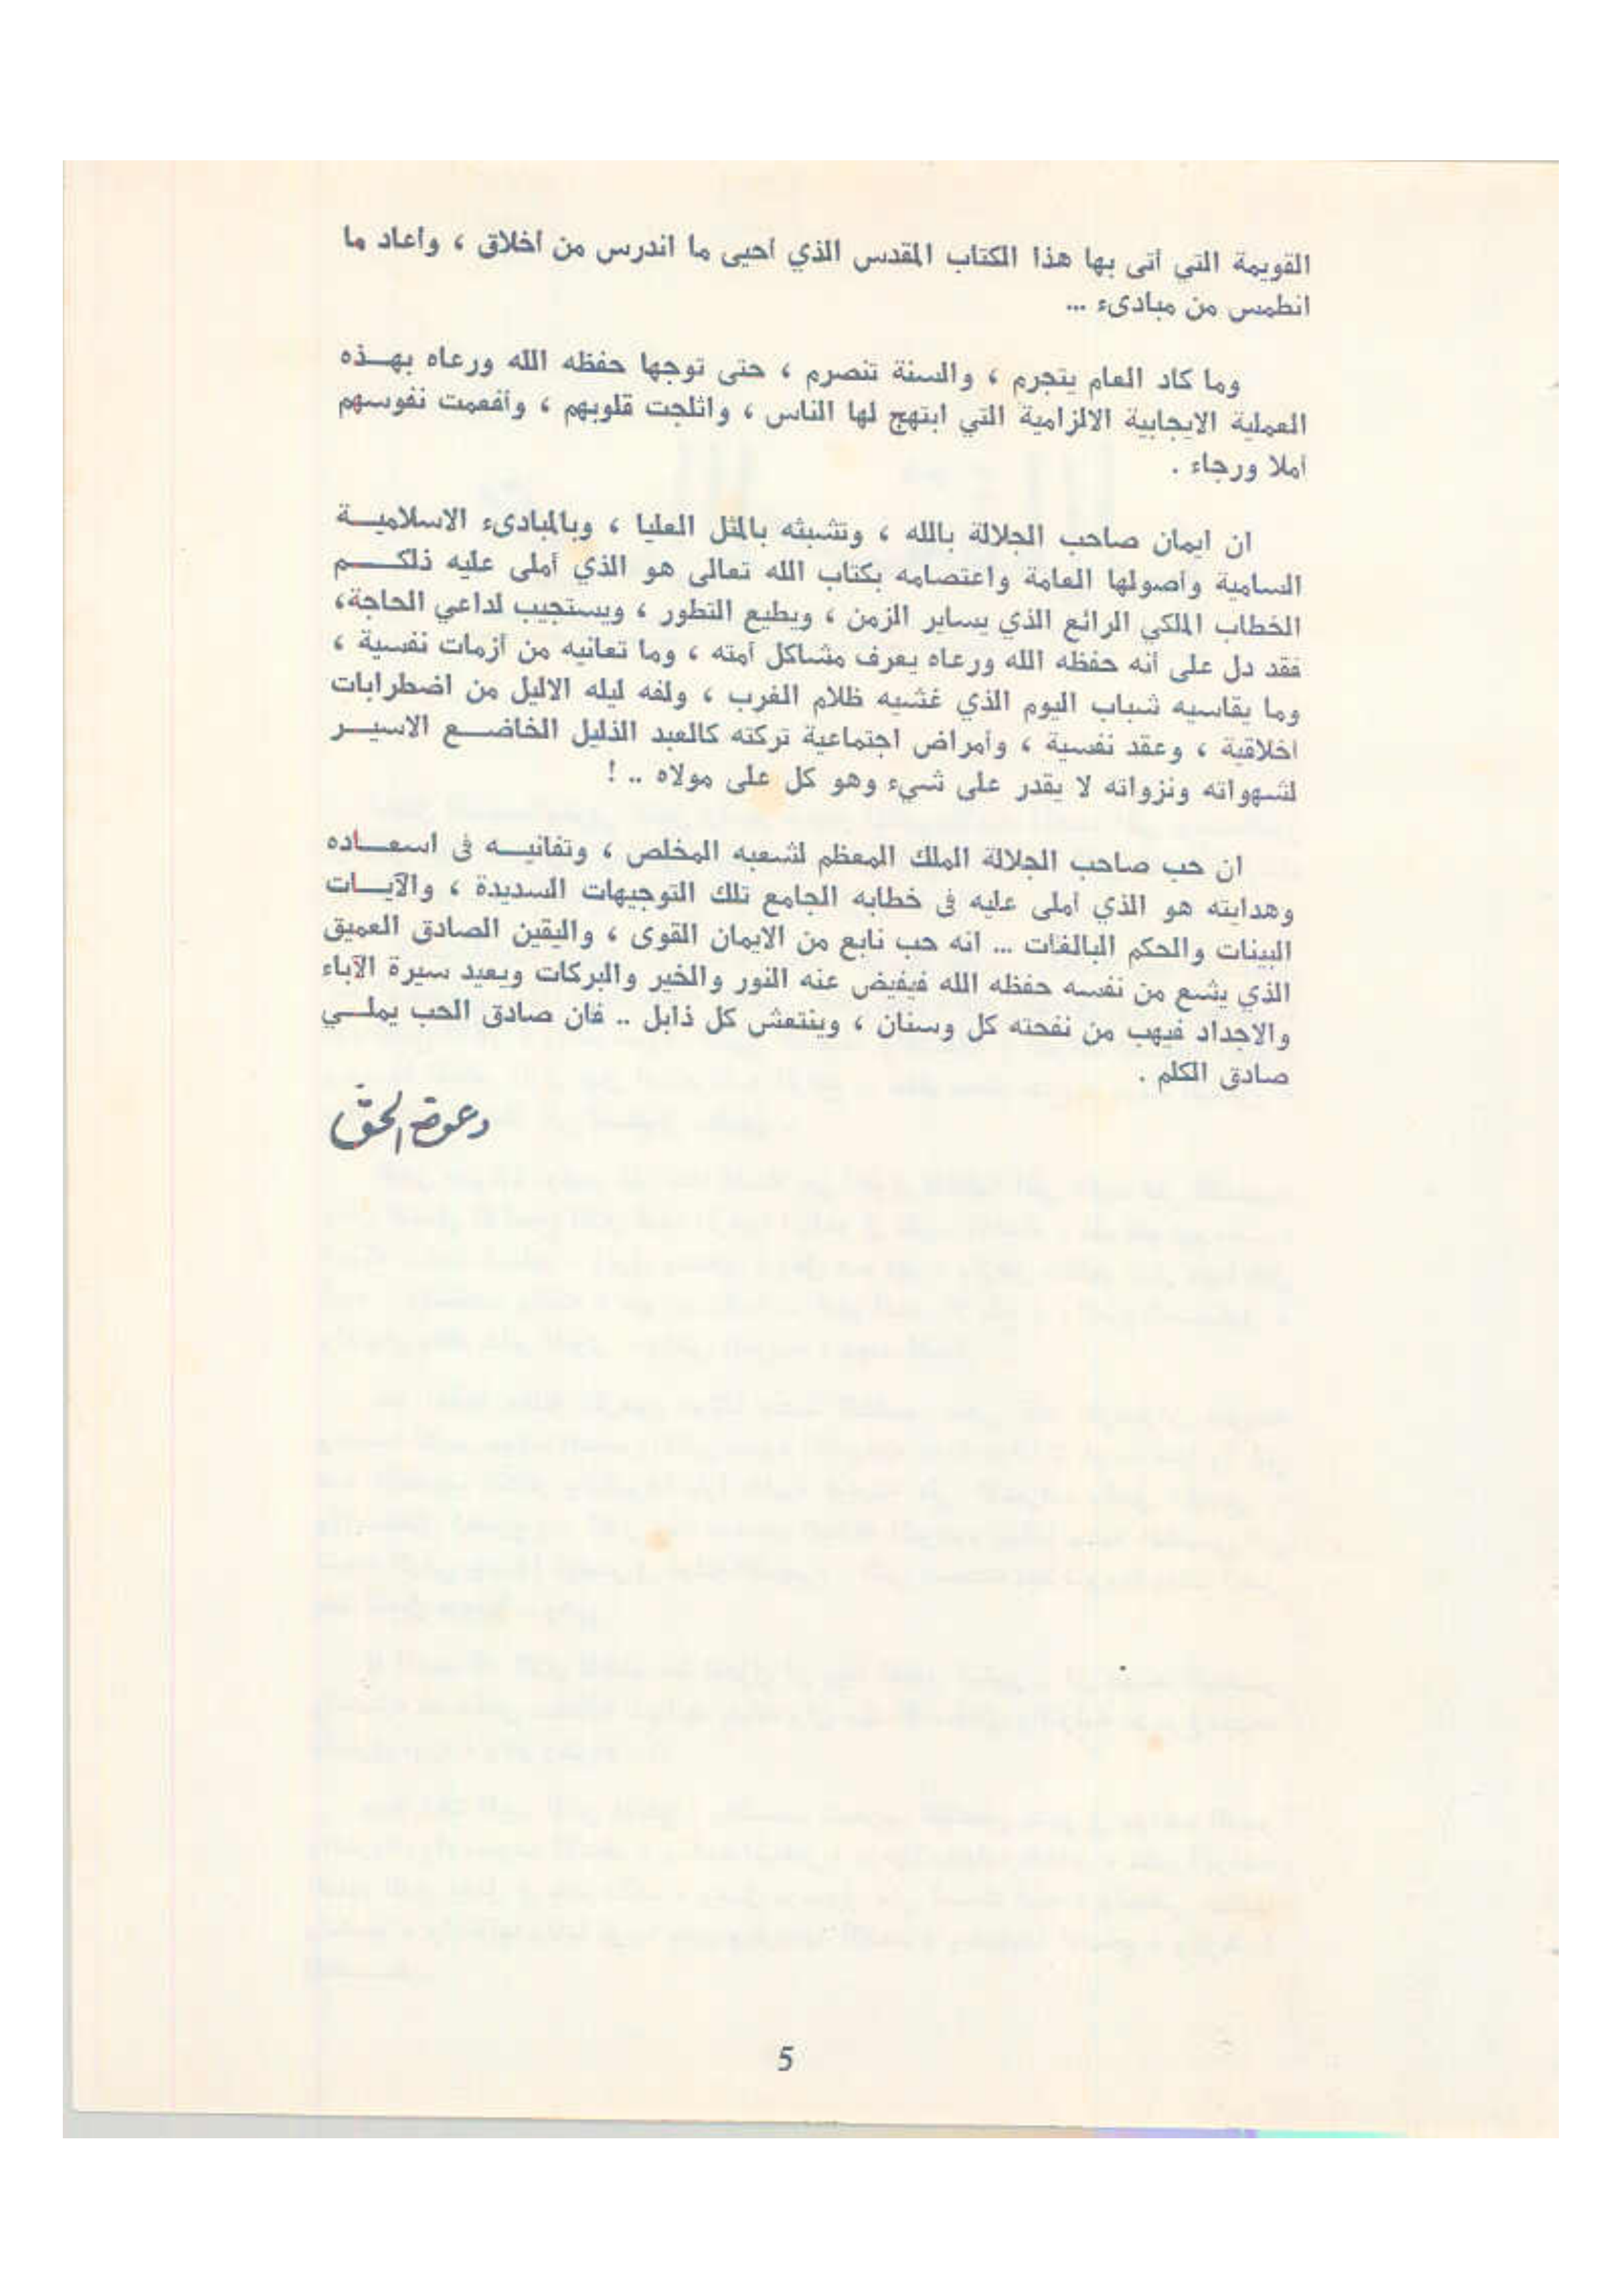 القويمة التي أتى بها هذا الكتاب المقدس الذي أحيى ما اندرس من أخلاق ، وأعاد ما
انطمس من مبادىء ...
وما كاد العام يتجرم ، والسنة تنصرم ، حتى توجها حفظه الله ورعاه بهـــذه
العملية الايجابية الالزامية التي ابتهج لها الناس ، واثلجت قلوبهم ، وأفعمت نفوسهم
أملا ورجاء .
ان ايمان صاحب الجلالة بالله ، وتشبثه بالمثل العليا ، وبالمبادىء الاسلاميـــة
السامية وأصولها العامة واعتصامه بكتاب الله تعالى هو الذي أملى عليه ذلكـــــم
الخطاب الملكي الرائع الذي يساير الزمن ، ويطيع التطور ، ويستجيب لداعي الحاجة،
فقد دل على أنه حفظه الله ورعاه يعرف مشاكل أمته ، وما تعانيه من أزمات نفسية ،
وما يقاسيه شباب اليوم الذي غشيه ظلام الغرب ، ولفه ليله الاليل من اضطرابات
اخلاقية ، وعقد نفسية ، وأمراض اجتماعية تركته كالعبد الذليل الخاضـــع الاسيـــر
لشهواته ونزواته لا يقدر على شيء وهو كل على مولاه .. !
ان حب صاحب الجلالة الملك المعظم لشعبه المخلص ، وتفانيـــه فى اسعـــاده
وهدايته هو الذي أملى عليه فى خطابه الجامع تلك التوجيهات السديدة ، والآيـــات
البينات والحكم البالغات ... انه حب نابع من الايمان القوى ، واليقين الصادق العميق
الذي يشع من نفسه حفظه الله فيفيض عنه النور والخير والبركات ويعيد سيرة الآباء
والاجداد فيهب من نفحته كل وسنان ، وينتعش كل ذابل .. فان صادق الحب يملـــي
صادق الكلم .
دعوة الحق
5